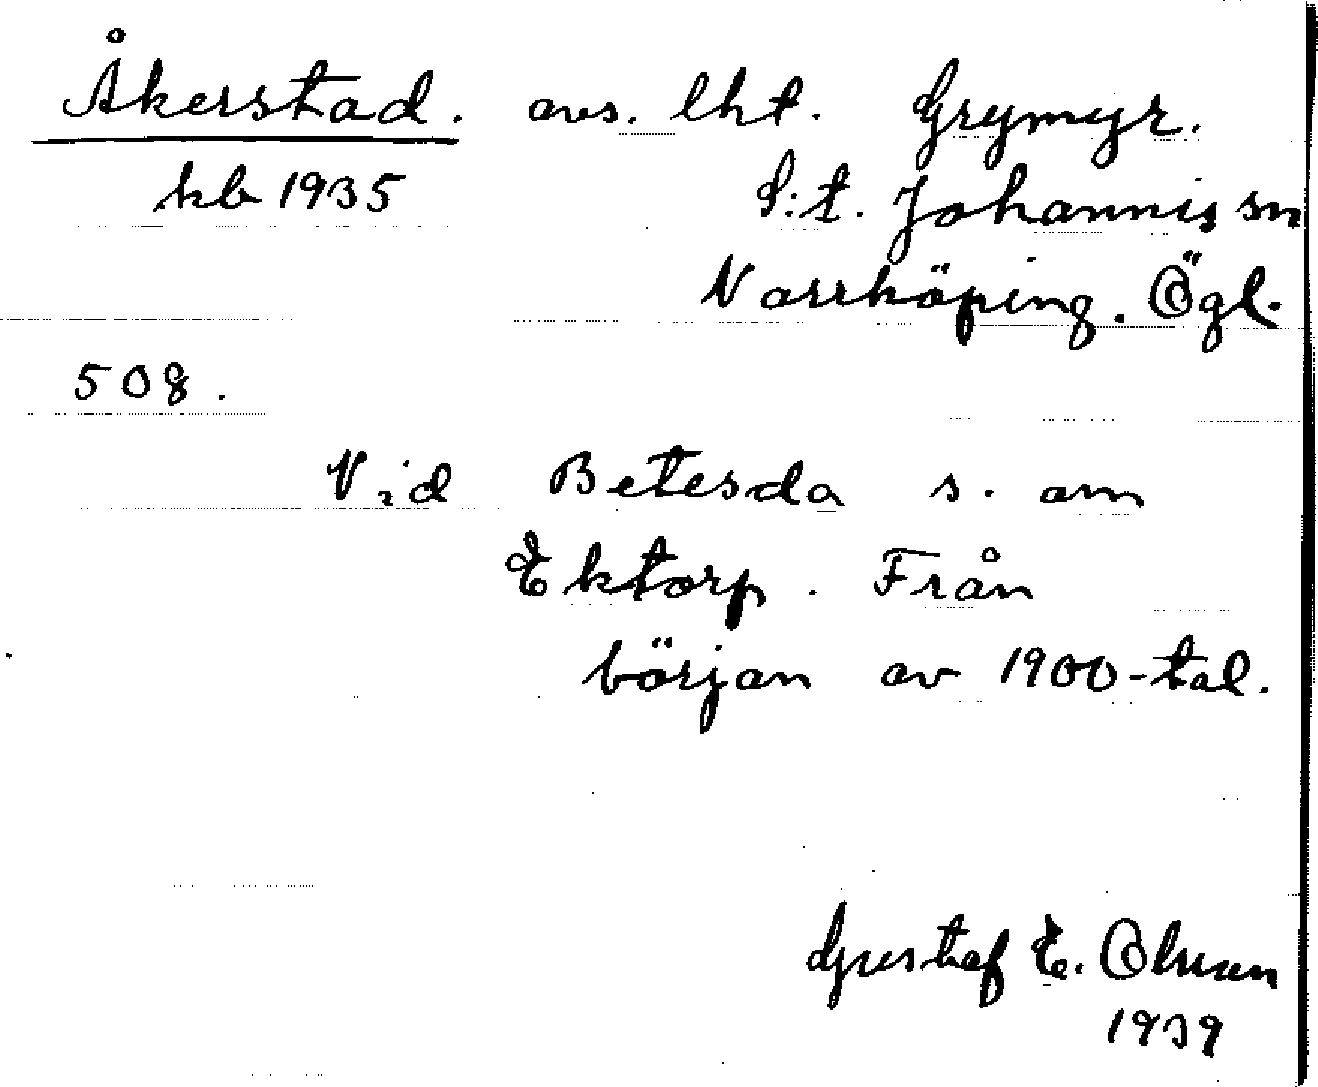 Åkerstad. avs. lht. Grymyr.
kb 1935 S:t. Johannis sn
Norrköping. Ögl.
508.
Vid Betesda s. om
Ektorp. Från
början av 1900-tal.
Gustaf E. Olsson
1939